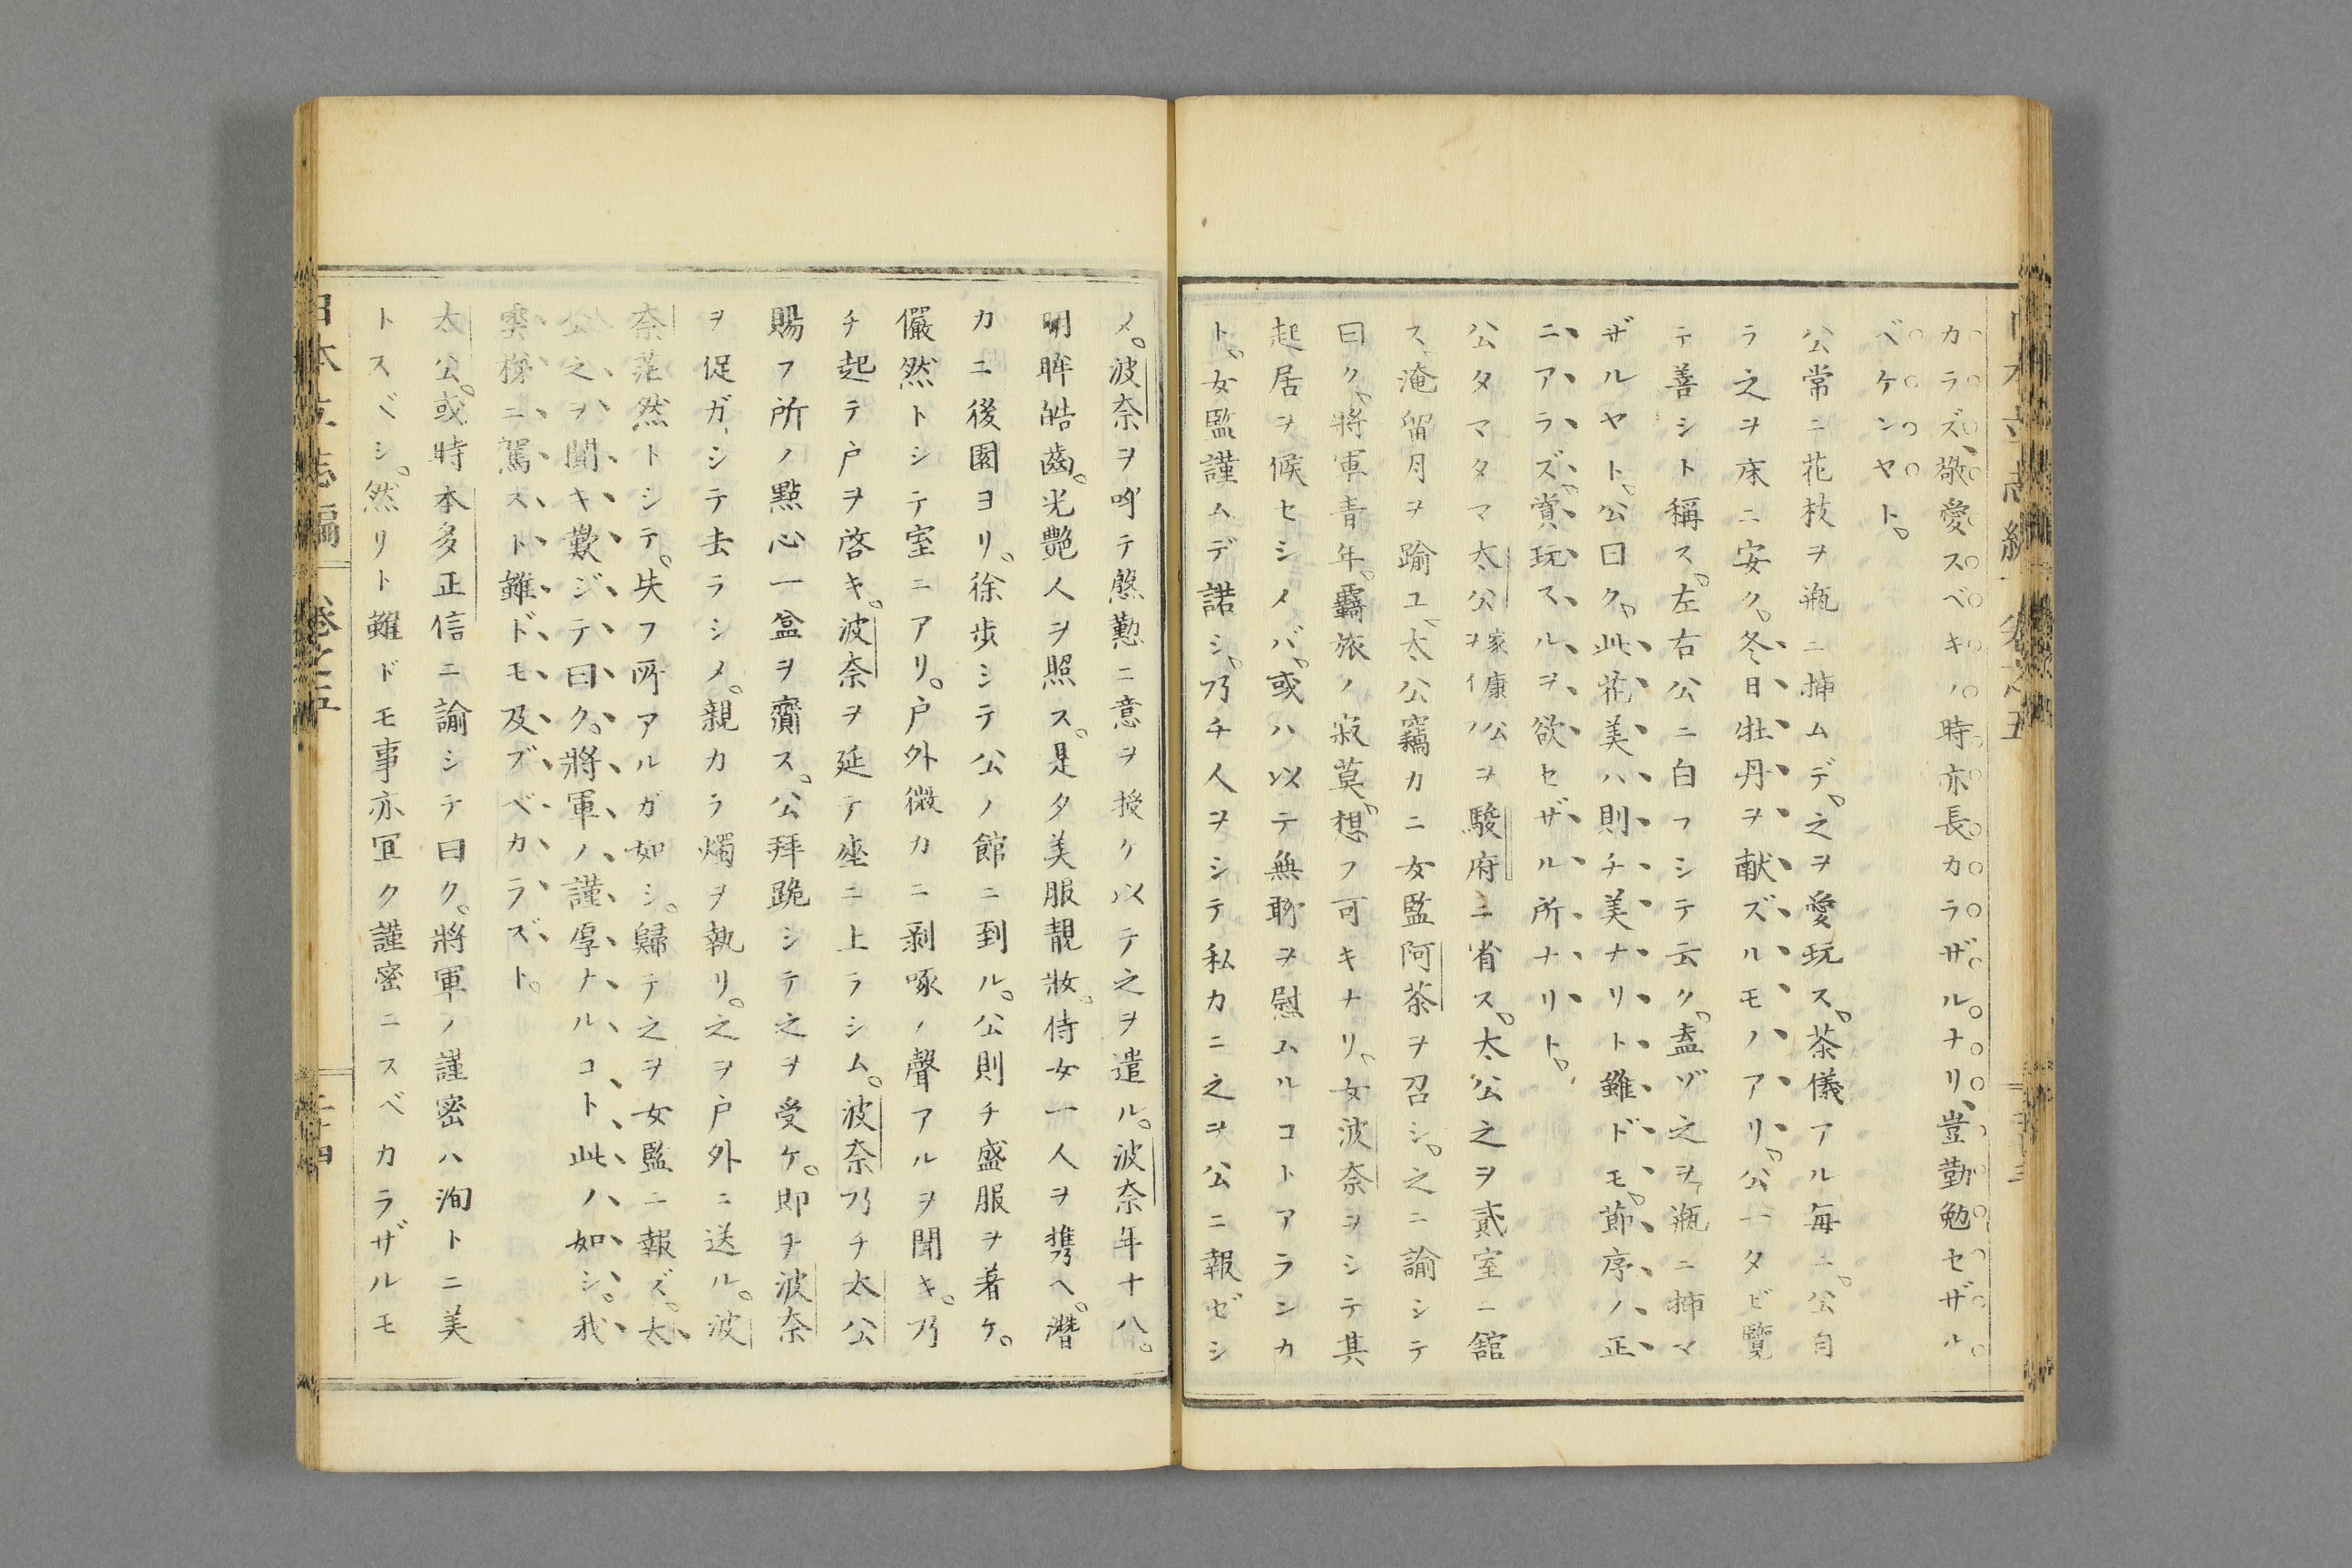 カラズ、敬愛スベキノ時亦長カラザルナリ、豈勤勉セザル
ベケンヤト。
公常ニ花枝ヲ瓶ニ挿ムデ。之ヲ愛玩ス。茶儀アル毎ニ。公自
ラ之ヲ床ニ安ク。冬日牡丹ヲ献ズルモノアリ。公一タビ覽
テ善シト稱ス。左右公ニ白フシテ云ク。盍ゾ之ヲ瓶ニ挿マ
ザルヤト。公曰ク。此花美ハ則チ美ナリト雖ドモ。節序ノ正
ニアラズ。賞玩スルヲ欲セザル所ナリト。
公タマタマ太公家康公ヲ云フヲ駿府ニ省ス。太公之ヲ貳室ニ舘
ス、淹留月ヲ踰ユ、太公竊カニ女監阿茶ヲ召シ。之ニ諭シテ
曰ク、將軍青年。羇旅ノ寂莫。想フ可キナリ。女波奈ヲシテ其
起居ヲ候セシメバ。或ハ以テ無聊ヲ慰ムルコトアランカ
ト。女監謹ムデ諾シ。乃チ人ヲシテ私カニ之ヲ公ニ報ゼシ
メ。波奈ヲ呼テ慇懃ニ意ヲ授ケ以テ之ヲ遣ル。波奈年十八。
明眸皓齒。光艶人ヲ照ス。是夕美服靚妝。侍女一人ヲ携ヘ。潛
カニ後園ヨリ。徐歩シテ公ノ館ニ到ル。公則チ盛服ヲ着ケ。
儼然トシテ室ニアリ。戸外微カニ剥啄ノ聲アルヲ聞キ。乃
チ起テ戸ヲ啓キ。波奈ヲ延テ座ニ上ラシム。波奈乃チ太公
賜フ所ノ點心一盒ヲ齎ス。公拜跪シテ之ヲ受ケ。即チ波奈
ヲ促ガシテ去ラシメ。親カラ燭ヲ執リ。之ヲ戸外ニ送ル。波
奈茫然トシテ。失フ所アルガ如シ。歸テ之ヲ女監ニ報ズ。太
公之ヲ聞キ歎ジテ曰ク。將軍ノ謹厚ナルコト此ノ如シ。我
雲梯ニ駕スト雖ドモ及ブベカラズト。
太公。或時本多正信ニ諭シテ曰ク。將軍ノ謹密ハ洵トニ美
トスベシ。然リト雖ドモ事亦冝ク謹密ニスベカラザルモ
日本立志編 卷之五 二十四